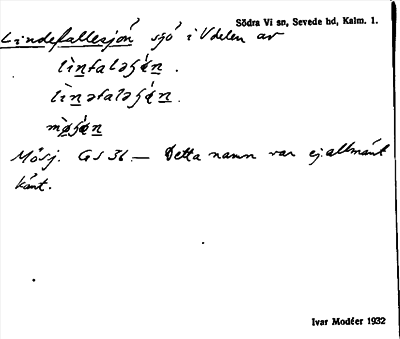 Södra Vi sn, Sevede hd, Kalm. 1.
Lindefallesjön sjö i V delen av
lìnfaləʃǿn .
lìnəfaləʃǿn .
mǿʃǿn
Mösj. GS 36. — Detta namn var ej allmänt
känt.
Ivar Modéer 1932